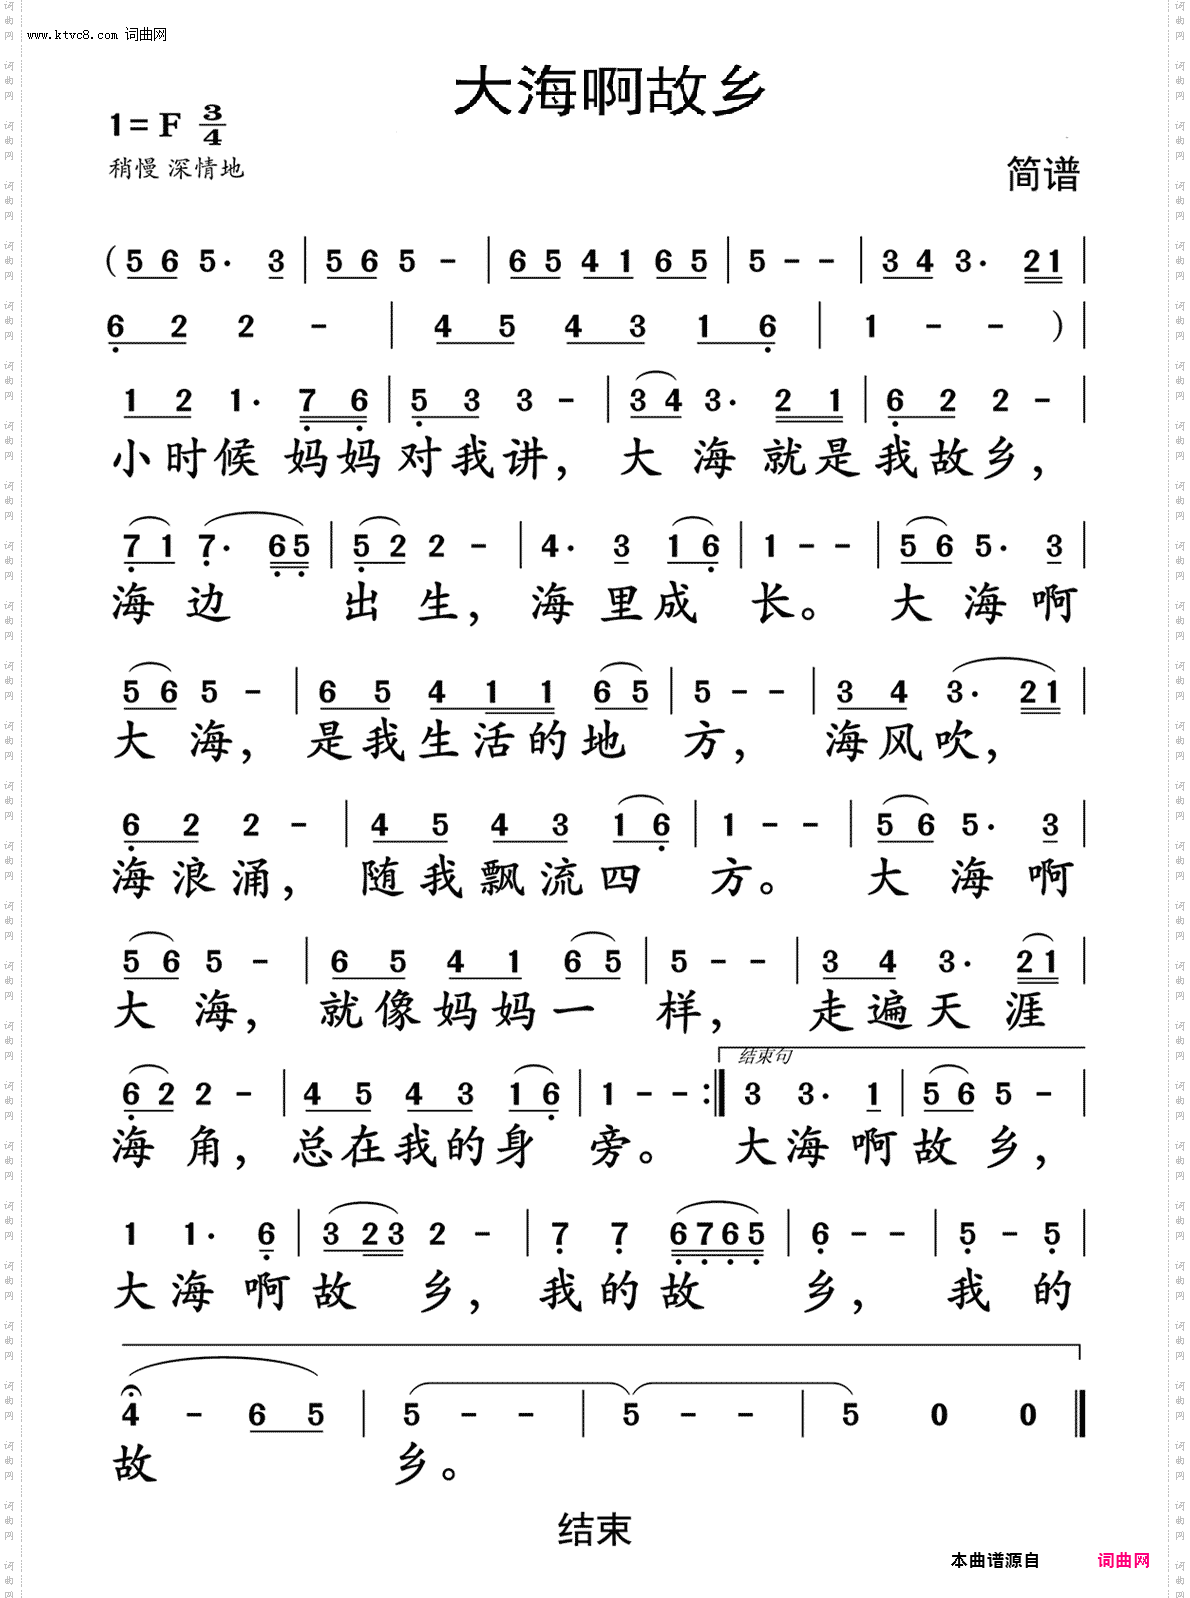 www.ktvc8.com 词曲网
大海啊故乡
1=F 3/4
稍慢 深情地
简谱
( 5 6 5· 3 | 5 6 5 - | 6 5 4 1 6 5 | 5 - - | 3 4 3· 2 1 |
6 2 2 - | 4 5 4 3 1 6 | 1 - - ) |
1 2 1· 7 6 | 5 3 3 - | 3 4 3· 2 1 | 6 2 2 - |
小时候 妈妈 对我讲， 大 海 就是 我故乡，
7 1 7· 6 5 | 5 2 2 - | 4· 3 1 6 | 1 - - | 5 6 5· 3 |
海 边 出 生， 海 里 成 长。 大 海 啊
5 6 5 - | 6 5 4 1 1 6 5 | 5 - - | 3 4 3· 2 1 |
大 海， 是我生活的地 方， 海风吹，
6 2 2 - | 4 5 4 3 1 6 | 1 - - | 5 6 5· 3 |
海浪涌， 随我飘流四 方。 大 海 啊
5 6 5 - | 6 5 4 1 6 5 | 5 - - | 3 4 3· 2 1 |
大 海， 就像妈妈一 样， 走遍天 涯
结束句
6 2 2 - | 4 5 4 3 1 6 | 1 - - :| 3 3· 1 | 5 6 5 - |
海 角， 总在我的身 旁。 大海 啊 故 乡，
1 1· 6 | 3 2 3 2 - | 7 7 6 7 6 5 | 6 - - | 5 - 5 |
大 海 啊 故 乡， 我 的 故 乡， 我 的
4 - 6 5 | 5 - - | 5 - - | 5 0 0
故 乡。
结束
本曲谱源自 词曲网